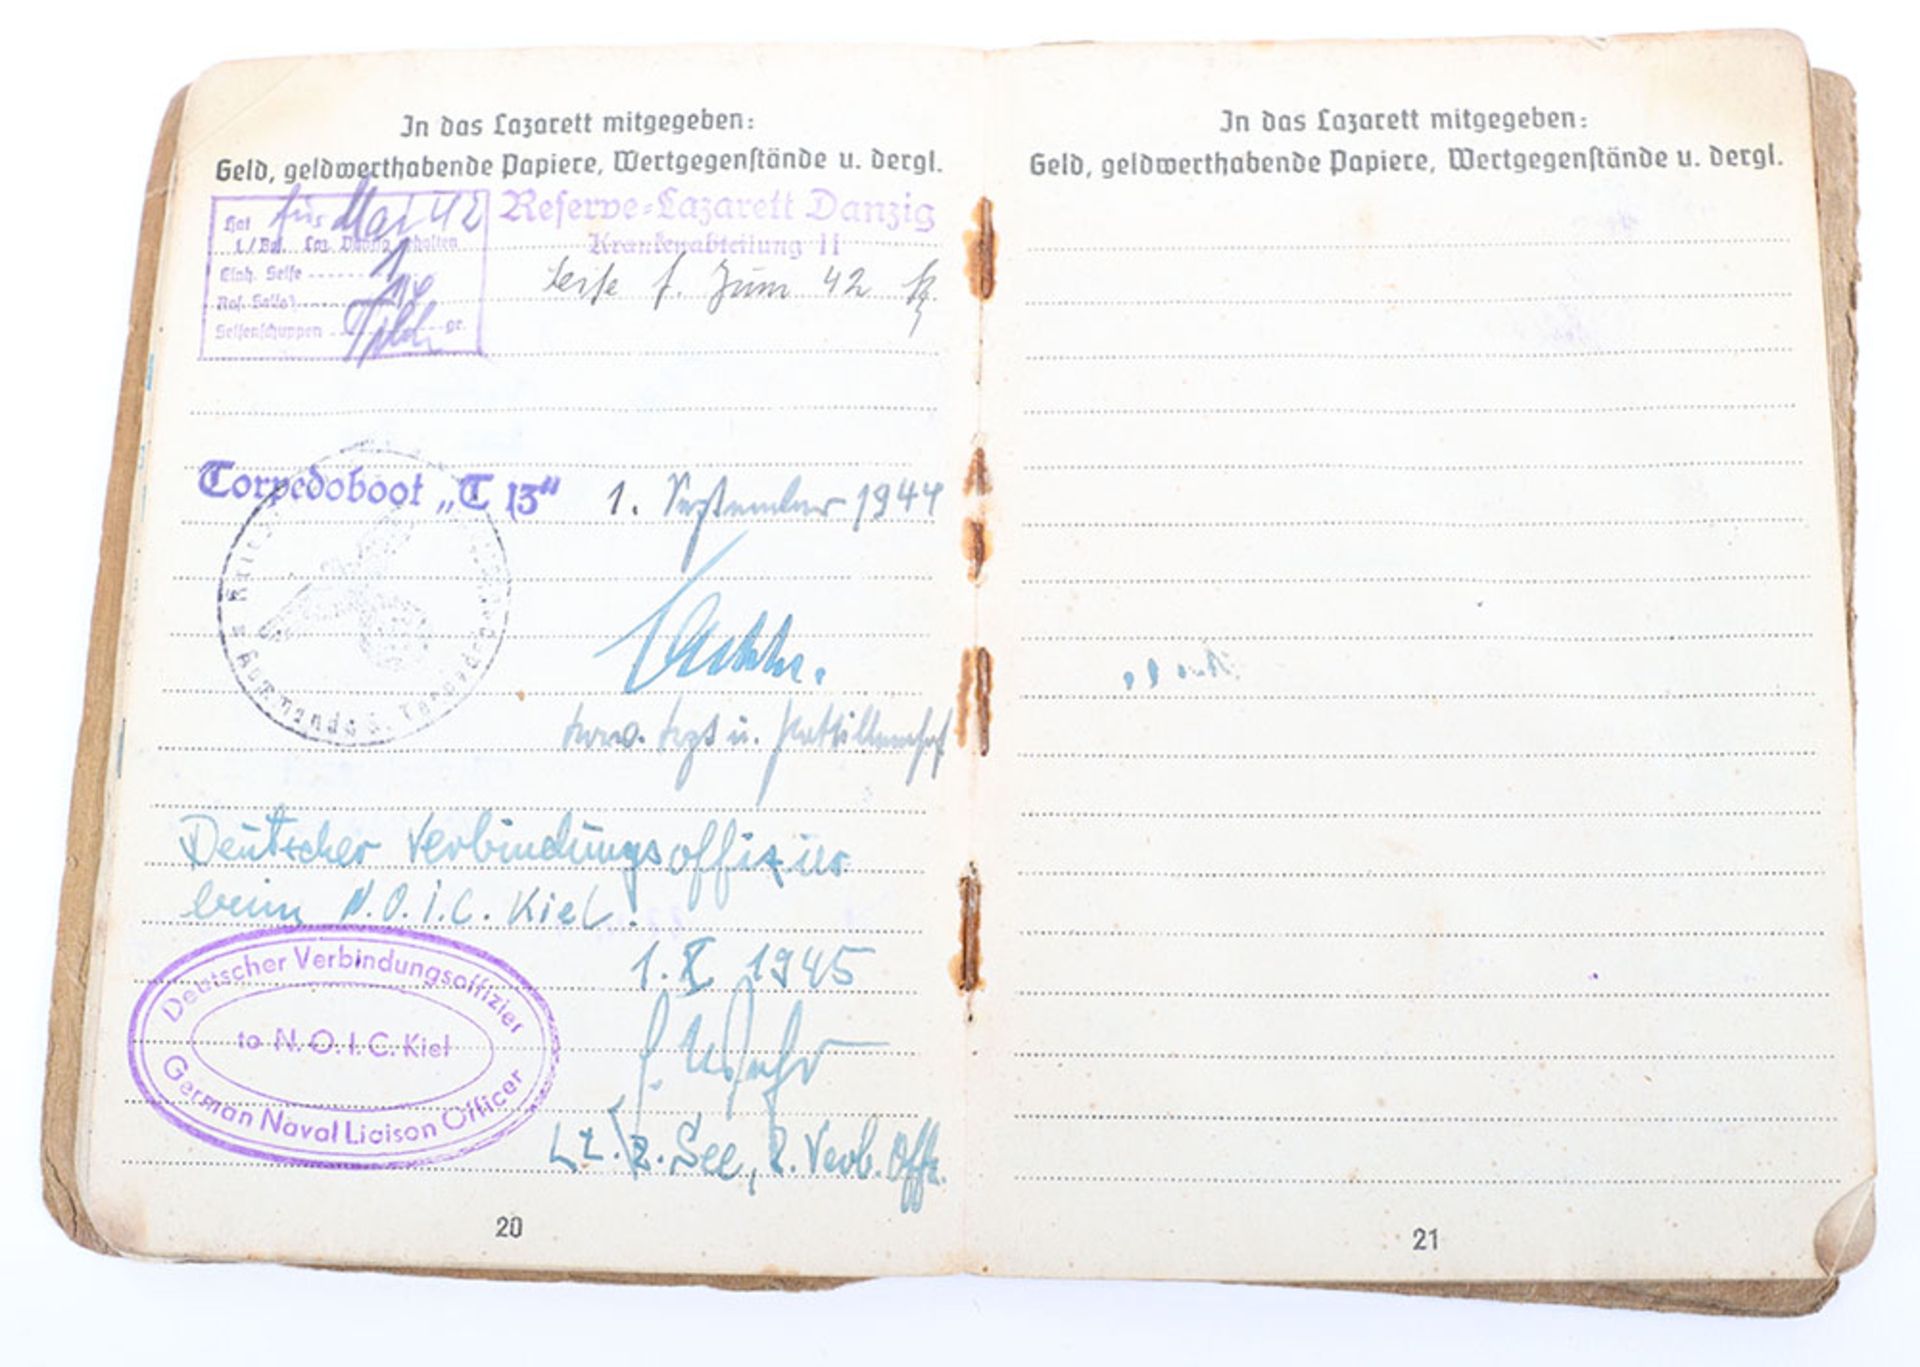 In das Lazarett mitgegeben:
Geld, geldwerthabende Papiere, Wertgegenstände u. dergl.
Hat für Mai 42
Laz. Danzig erhalten
Einh. Seife 1
Ras. Seife
Seifenschuppen gr.
Reserve-Lazarett Danzig
Krankenabteilung II
Seife f. Juni 42
Torpedoboot „T 13“ 1. September 1944
Kommando
Deutscher Verbindungsoffizier
beim N.O.I.C. Kiel.
1. X. 1945
Deutscher Verbindungsoffizier
to N.O.I.C. Kiel
German Naval Liaison Officer
Lt. z. See, Verb. Offz.
20
In das Lazarett mitgegeben:
Geld, geldwerthabende Papiere, Wertgegenstände u. dergl.
21